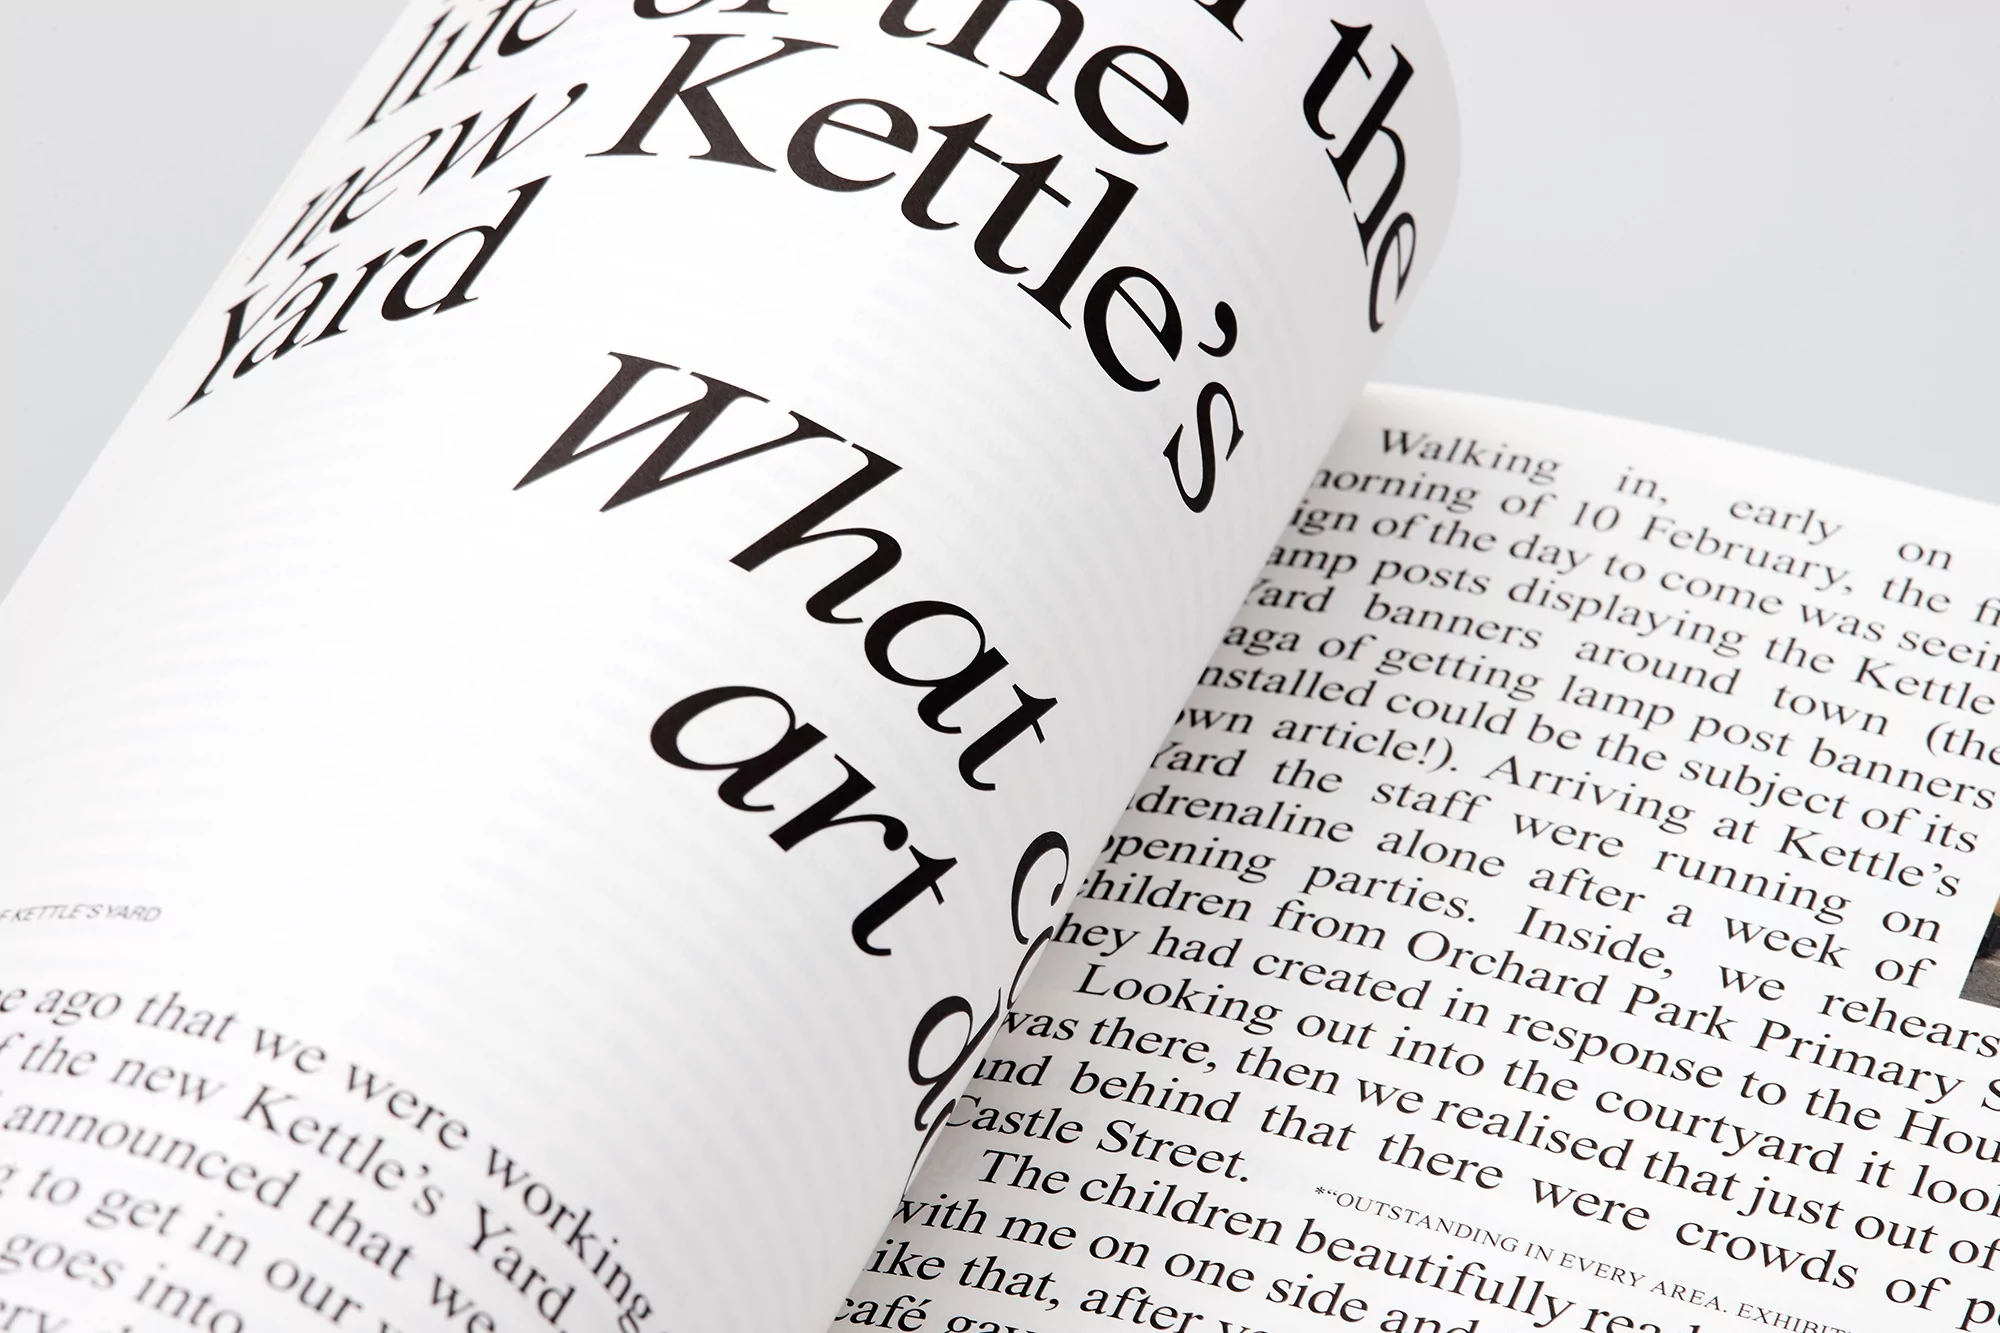 life of the
new Kettle's
Yard
the
What
art
KETTLE'S YARD
ago that we were working
the new Kettle's Yard.
announced that we
to get in our
goes into
Walking in, early on
of 10 February, the
of the day to come was
posts displaying the
banners around town
of getting lamp post banners
could be the subject of its
article!). Arriving at Kettle's
the staff were running on
alone after a week of
parties. Inside, we
from Orchard Park Primary
had created in response to the
Looking out into the courtyard it
there, then we realised that just out of
behind that there were crowds of
Castle Street.
*"OUTSTANDING IN EVERY AREA.
The children beautifully
with me on one side and
that, after
café